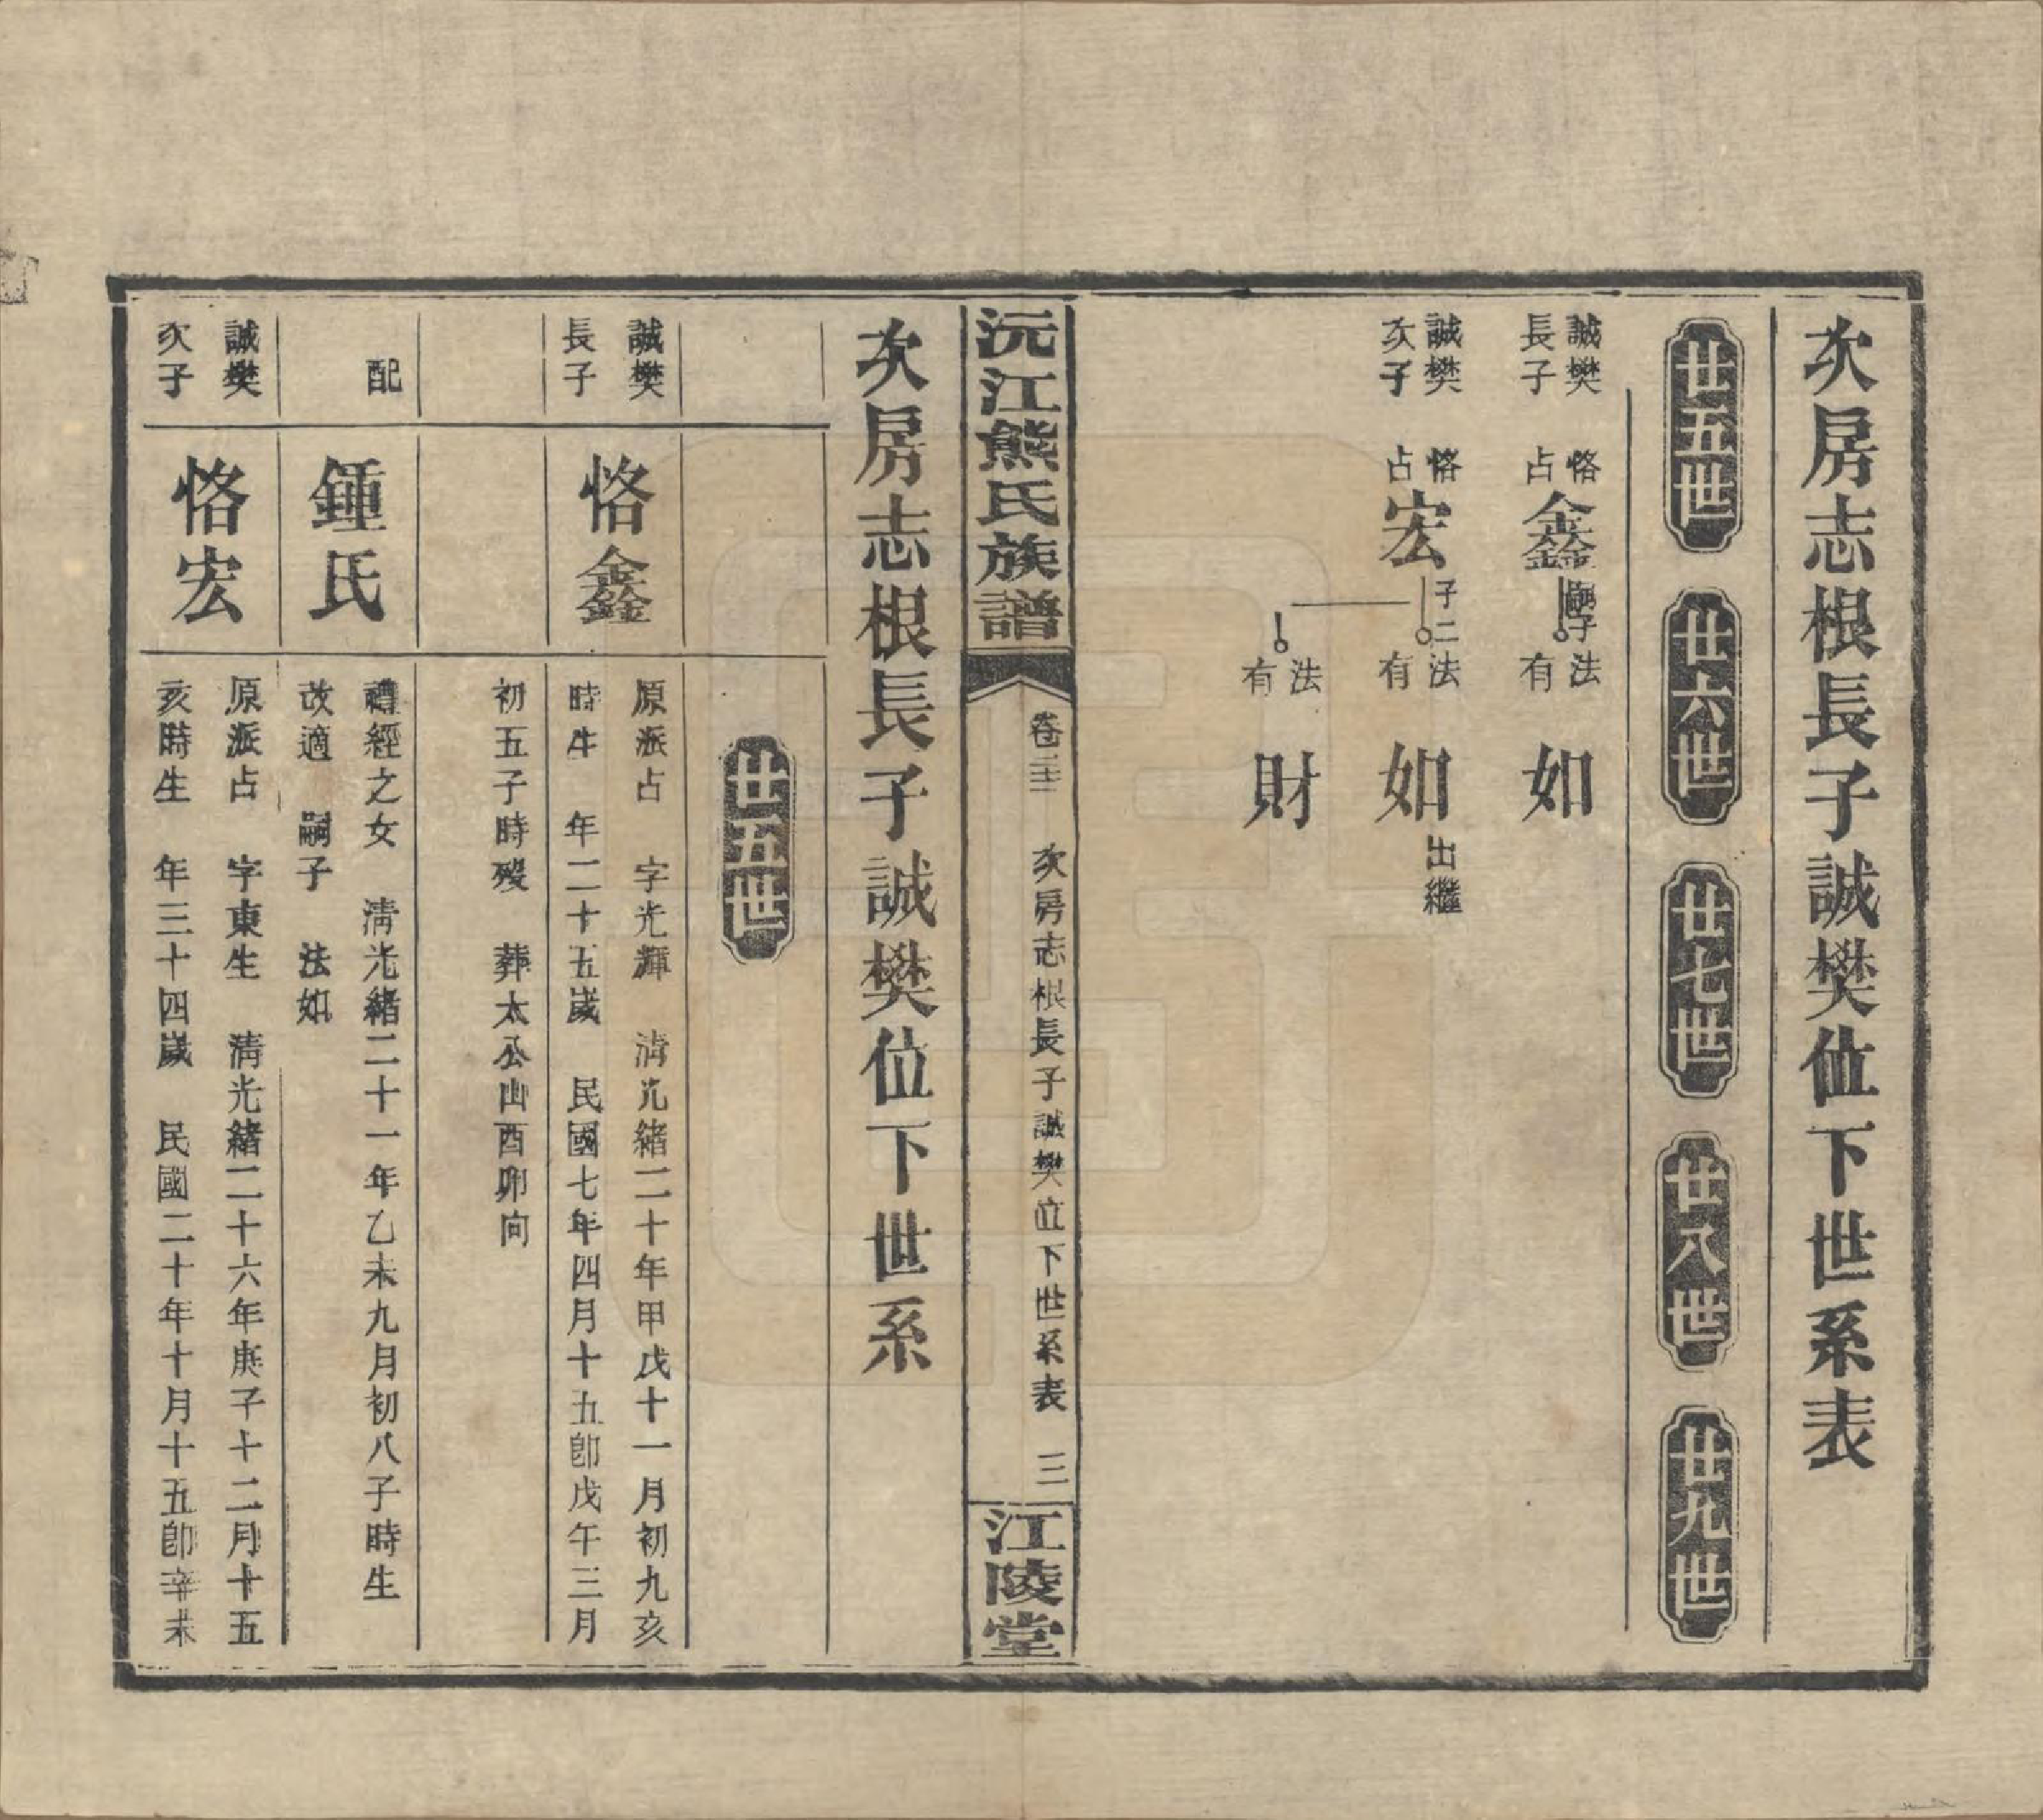 次房志根長子誠樊位下世系表
廿五世
廿六世
廿七世
廿八世
廿九世
誠樊
長子
恪
占
鑫
子
法
有
如
誠樊
次子
恪
占
宏
子二
法
有
如
出繼
法
有
財
沅江熊氏族譜
卷二三 次房志根長子誠樊位下世系表 三
江陵堂
次房志根長子誠樊位下世系
廿五世
誠樊
長子
恪鑫
原派占 字光輝 淸光緒二十年甲戊十一月初九亥
時生 年二十五歲 民國七年四月十五卽戊午三月
初五子時歿 葬太公山酉卯向
配
鍾氏
禮經之女 淸光緒二十一年乙未九月初八子時生
改適 嗣子 法如
誠樊
次子
恪宏
原派占 字東生 淸光緒二十六年庚子十二月十五
亥時生 年三十四歲 民國二十年十月十五卽辛未